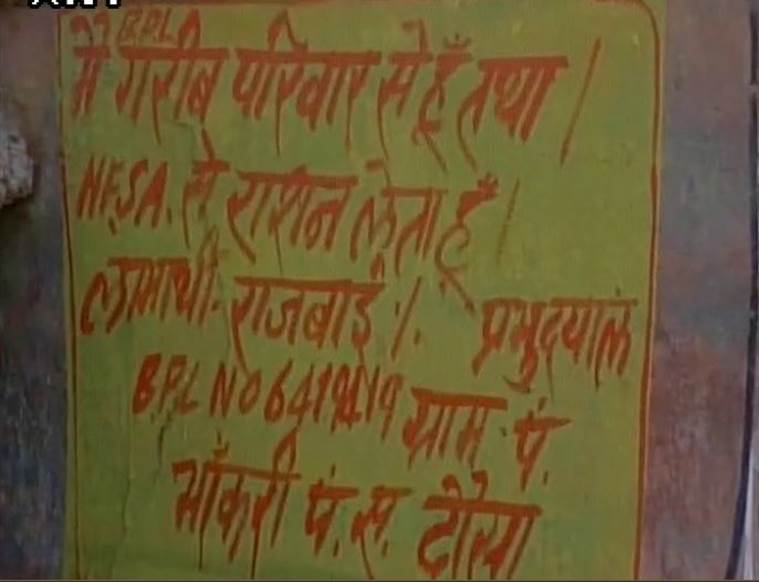 B.P.L
में गरीब परिवार से हूँ तथा ।
N.F.S.A. से राशन लेता हूँ ।
लाभार्थी- राजबाई ।. प्रभुदयाल
B.P.L NO ग्राम पं.
भाँकरी पं. स. दौसा